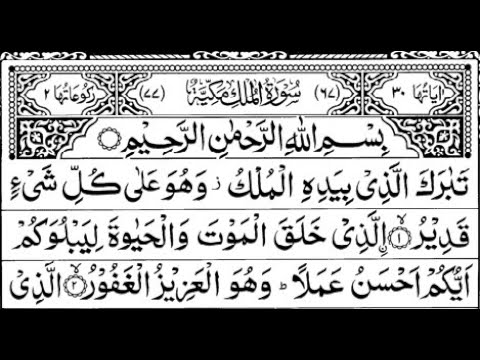 اٰيَاتُهَا ٣٠ (٦٧) سُوْرَةُ الْمُلْكِ مَكِّيَّةٌ (٧٧) رُكُوْعَاتُهَا ٢
بِسْمِ اللّٰهِ الرَّحْمٰنِ الرَّحِيْمِ
تَبٰرَكَ الَّذِيْ بِيَدِهِ الْمُلْكُ ز وَهُوَ عَلٰى كُلِّ شَيْءٍ
قَدِيْرُ ۙ﴿١﴾ ِۨالَّذِيْ خَلَقَ الْمَوْتَ وَالْحَيٰوةَ لِيَبْلُوَكُمْ
اَيُّكُمْ اَحْسَنُ عَمَلًا ؕ وَهُوَ الْعَزِيْزُ الْغَفُوْرُ ۙ﴿٢﴾ الَّذِيْ